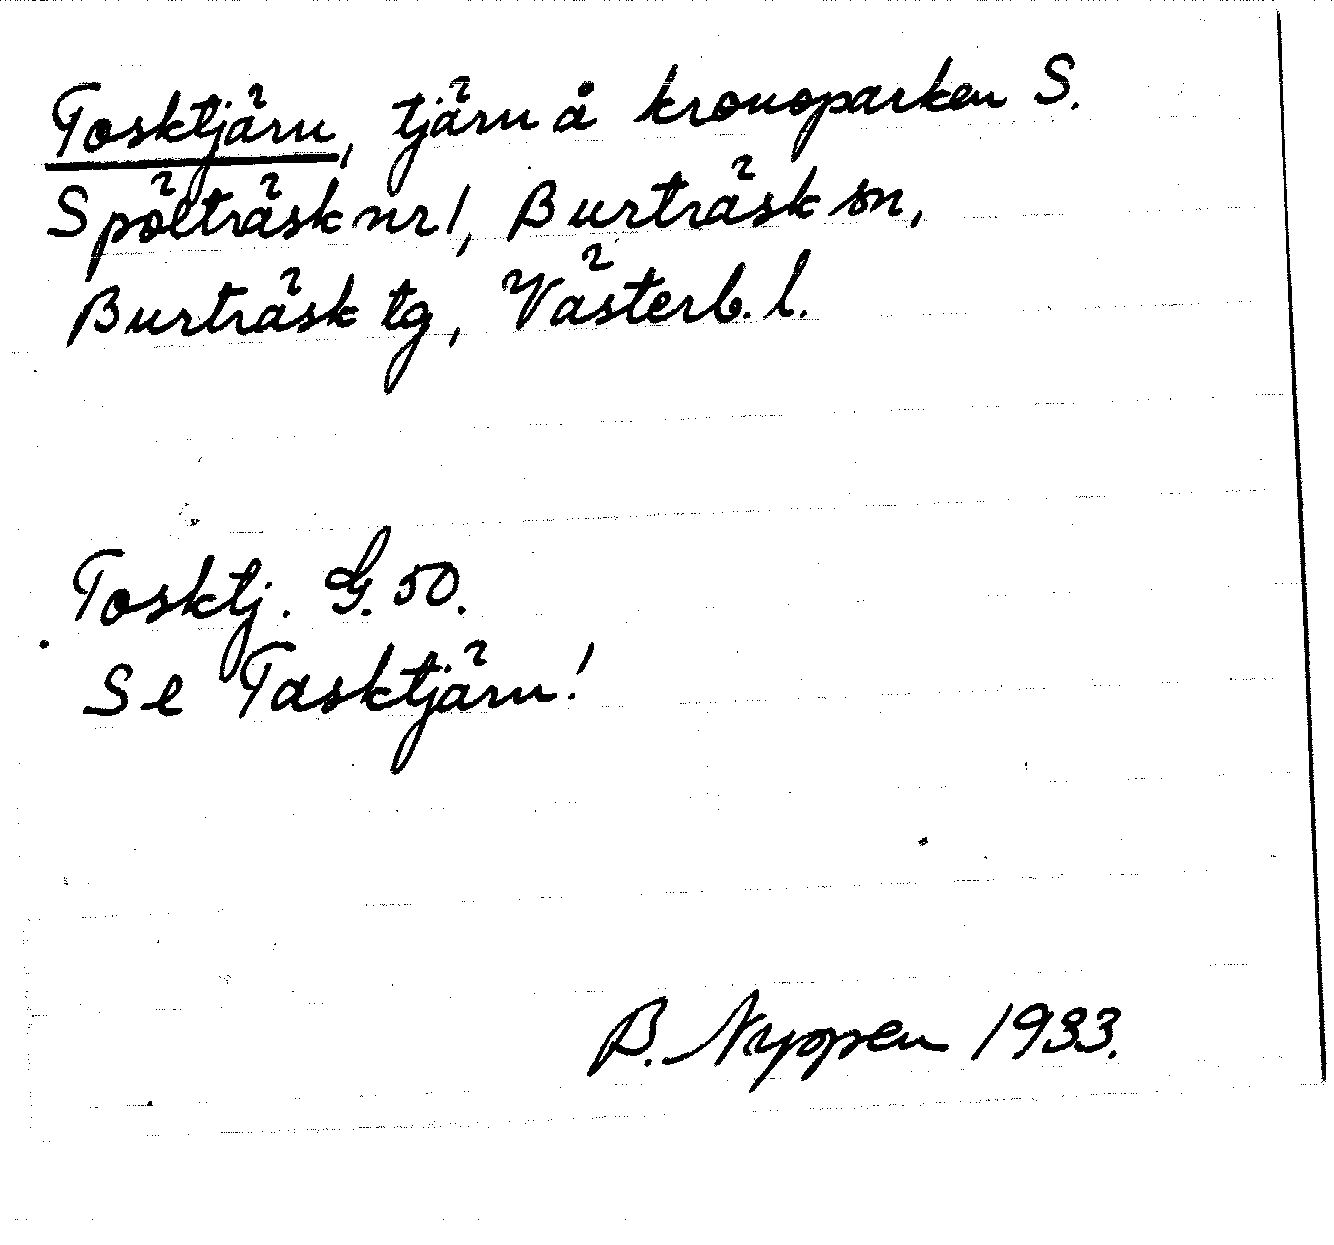 Tosktjärn, tjärn å kronoparken S.
Spölträsk nr 1, Burträsk sn,
Burträsk tg, Västerb. l.
Tosktj. G. 50.
Se Tasktjärn!
B. Nyppen 1933.